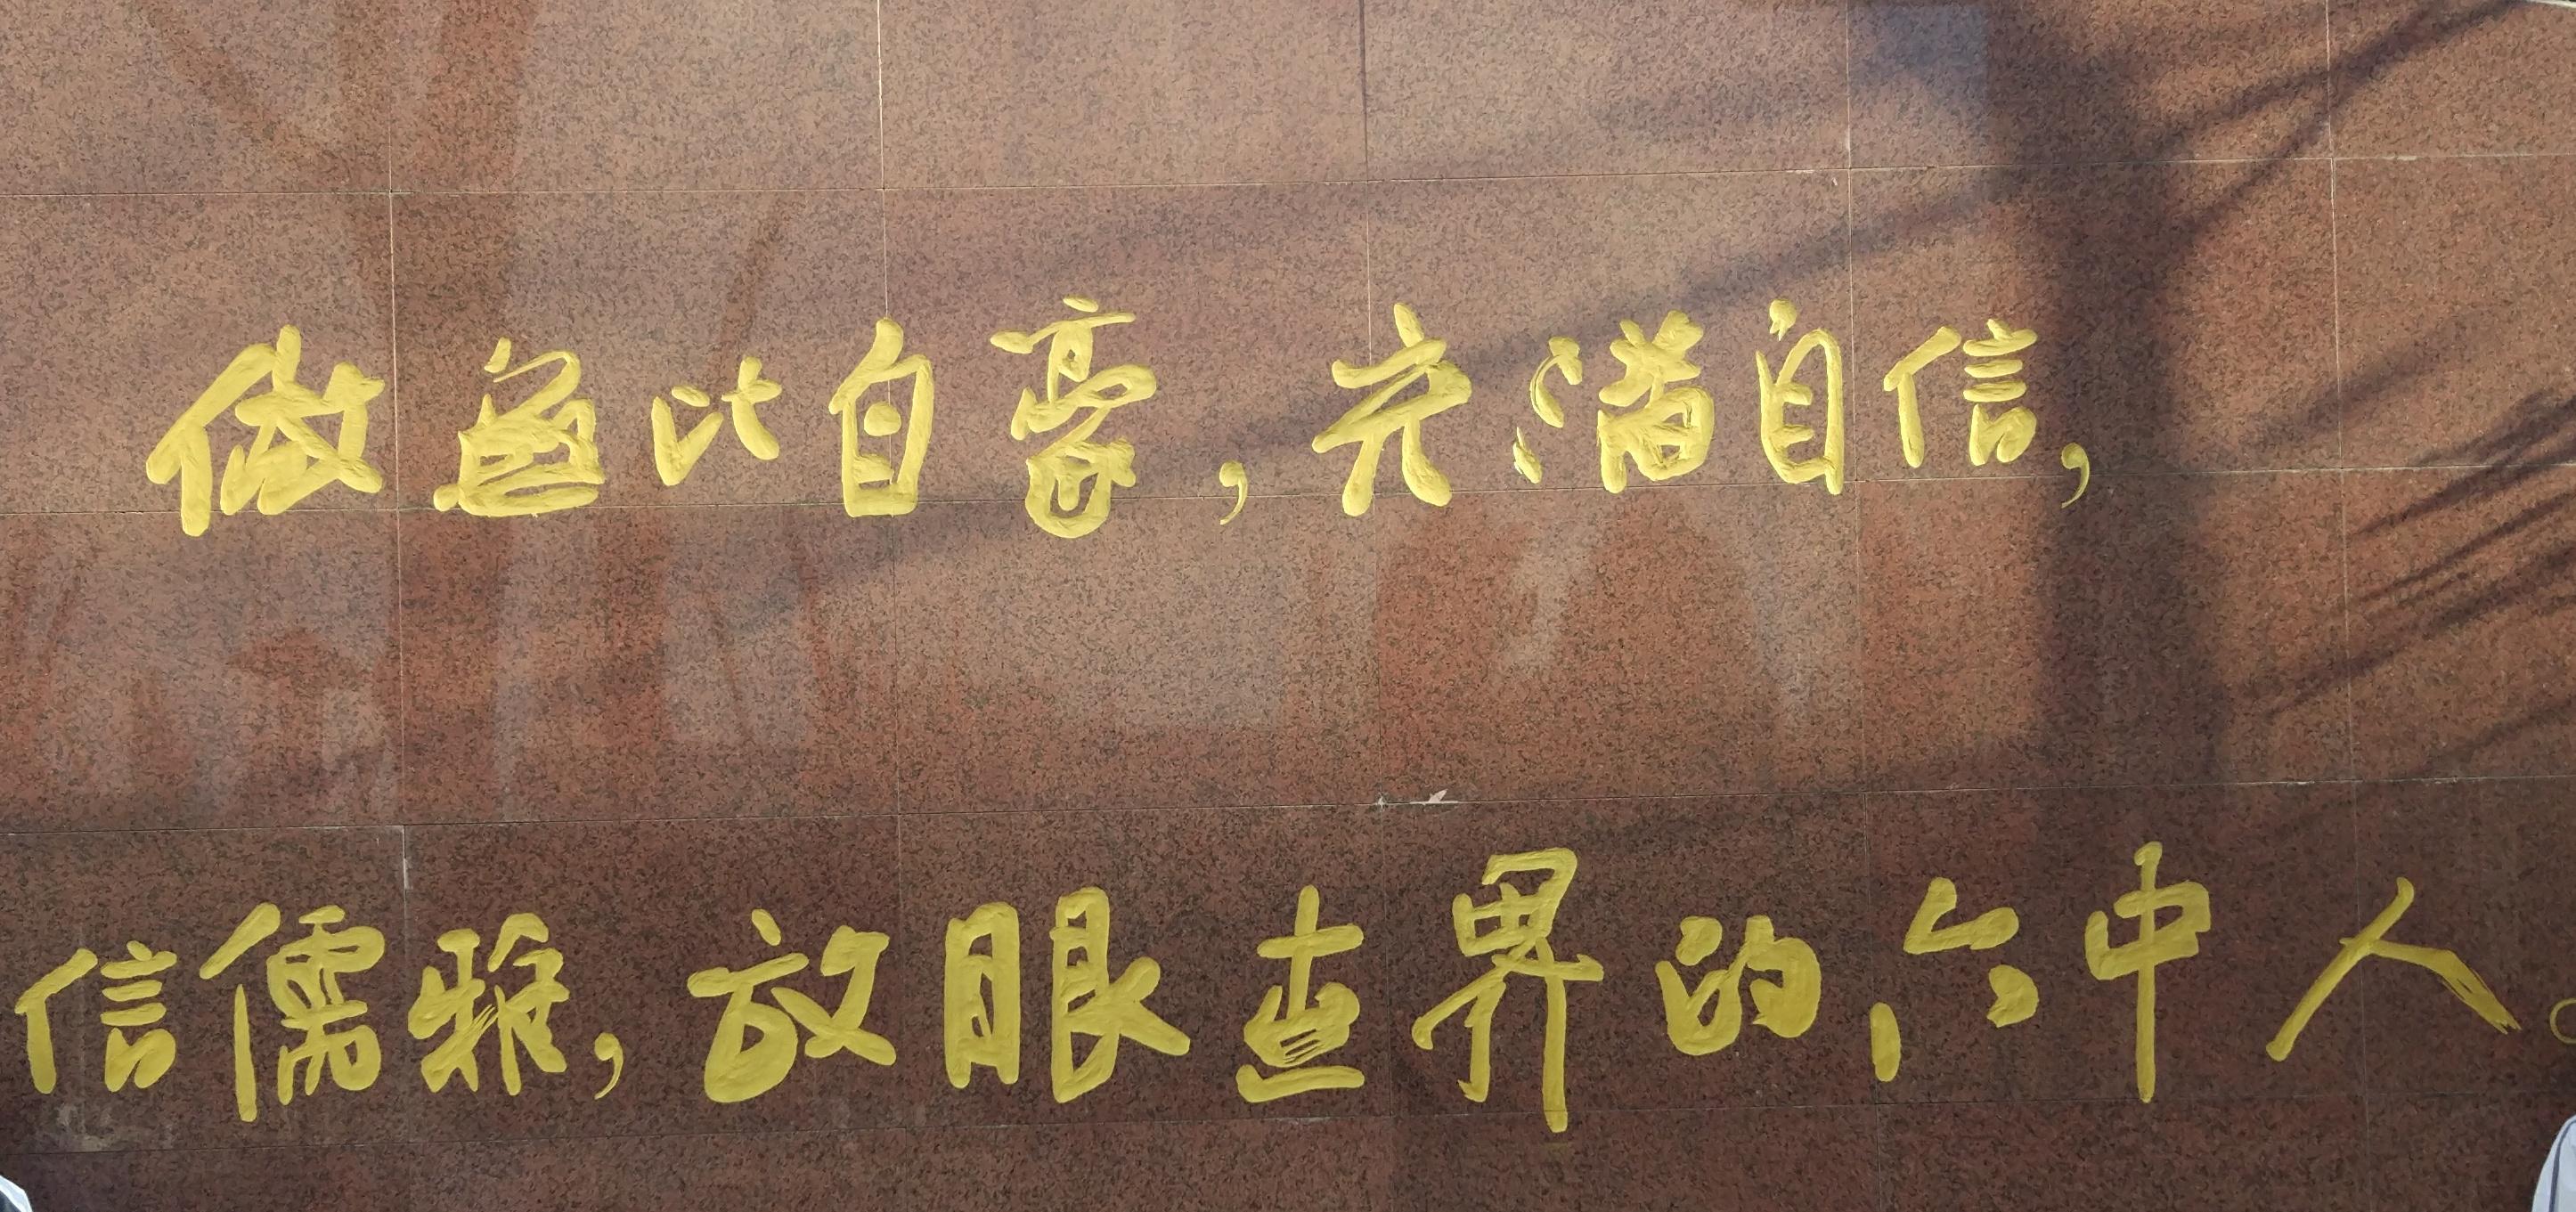 做無比自豪，充满自信，
信儒雅，放眼世界的六中人。